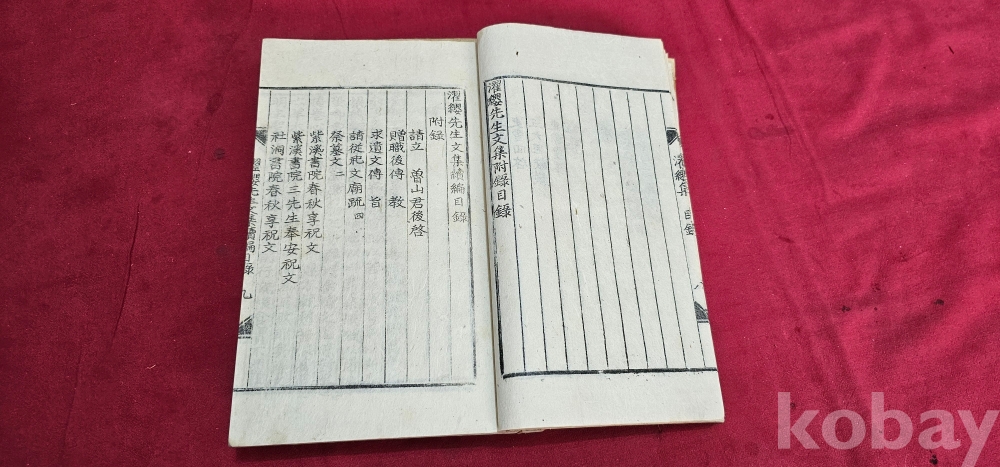 濯纓先生文集附錄目錄
濯纓集 目錄
濯纓先生文集續編目錄
附錄
請立 曾山君後啓
贈職後傳 教
求遺文傳 旨
請從祀文廟疏 四
祭墓文 二
紫溪書院春秋享祝文
紫溪書院三先生奉安祝文
社洞書院春秋享祝文
濯纓先生文集續編目錄 九
kobay